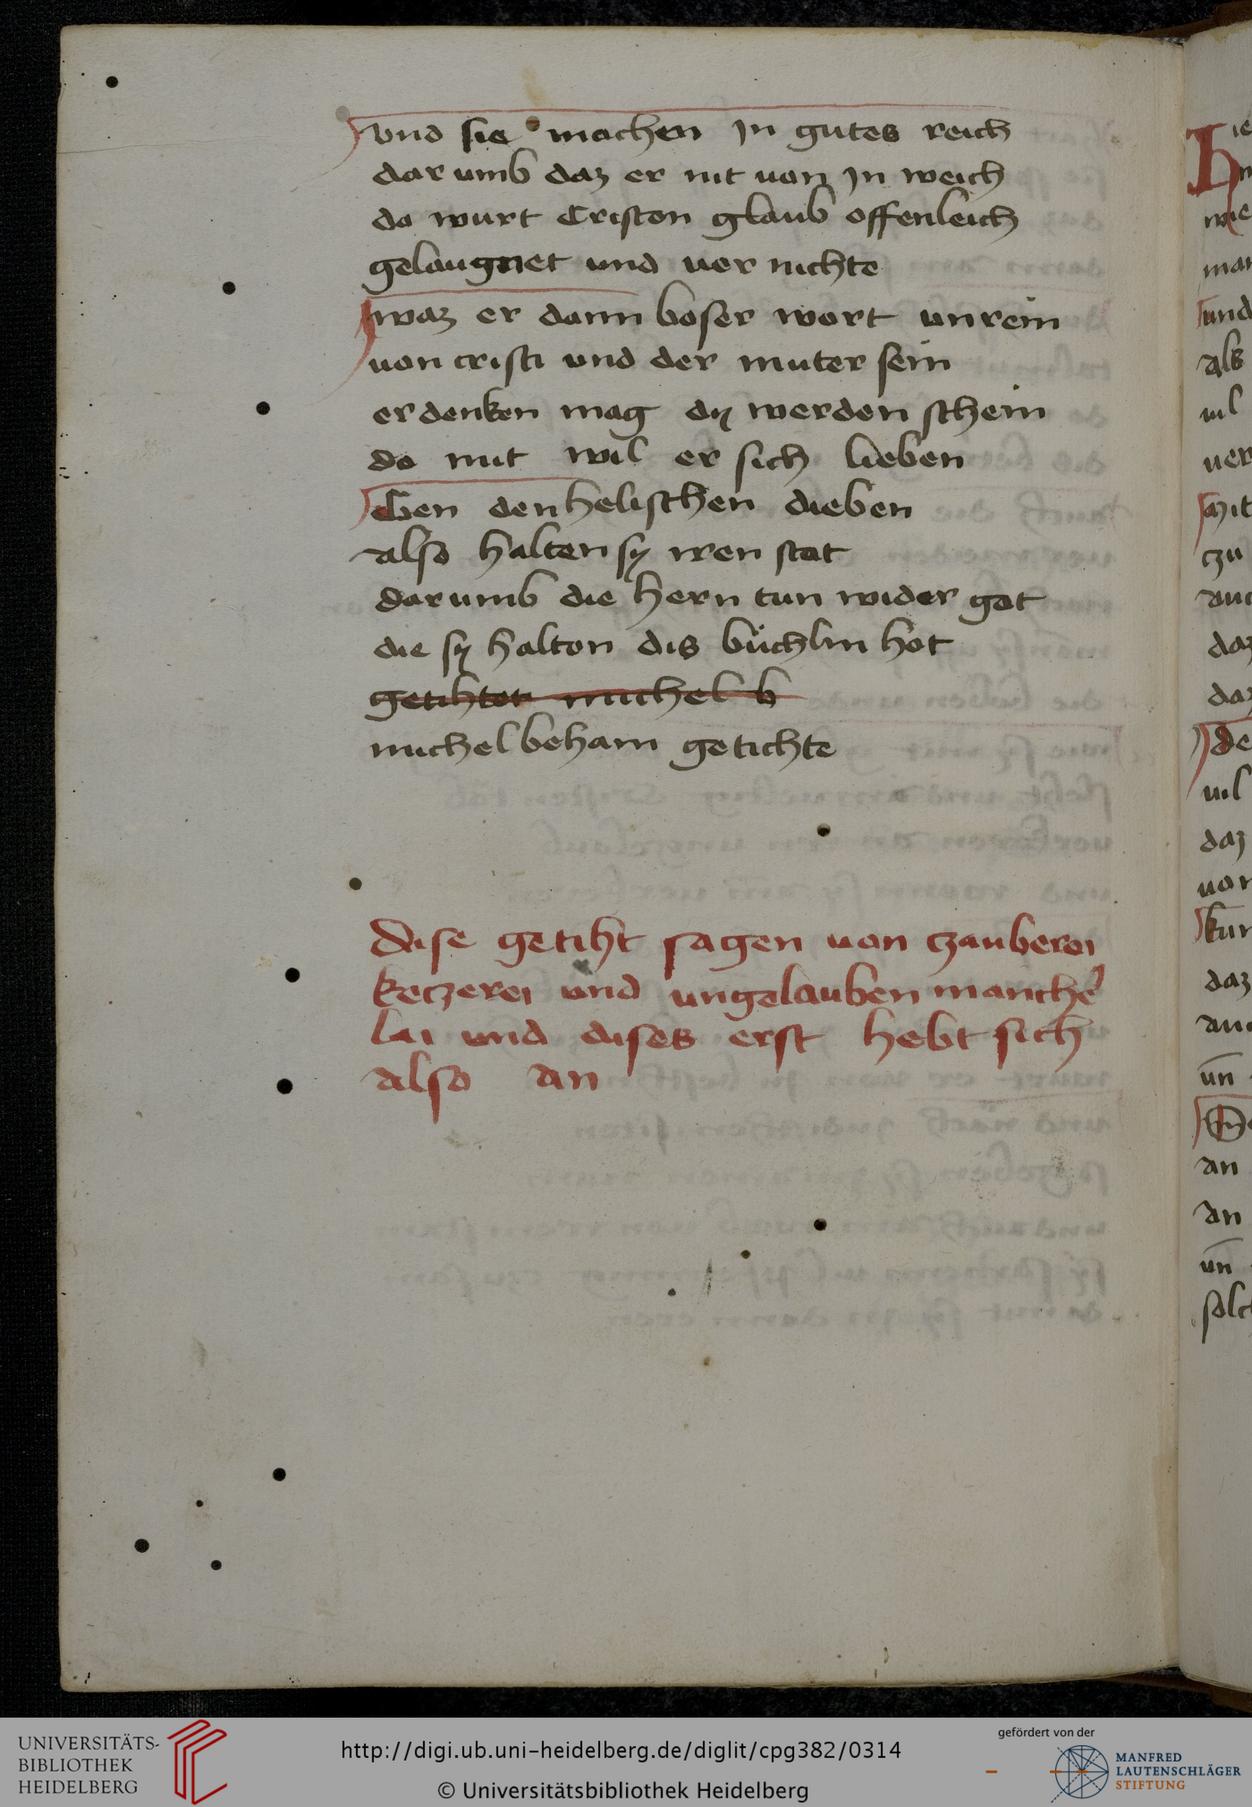 vnd sie machen In gutes reich
dar umb daz er nit uan In weich
do wurt Cristen glaub offenleich
gelaugnet und uer nichte
waz er dann boser wort unrein
uon cristi und der muter sein
er denken mag dy werden schein
do mit wil er sich lieben
Gen den helischen dieben
also halten sy iren stat
dar umb die hern tun wider got
die sy halten dis büchlin hot
getihtet michel b
michel beham getichte
Dise getiht sagen uon czauberei
keczerei und ungelauben manche
lai und dises erst hebt sich
also an
wie
man
und
als
uil
uer
mit
czu
auc
daz
daz
de
uil
daz
uor
kur
daz
auc
un
an
an
un
solch
UNIVERSITÄTS-
BIBLIOTHEK
HEIDELBERG
http://digi.ub.uni-heidelberg.de/diglit/cpg382/0314
© Universitätsbibliothek Heidelberg
gefördert von der
MANFRED
LAUTENSCHLÄGER
STIFTUNG